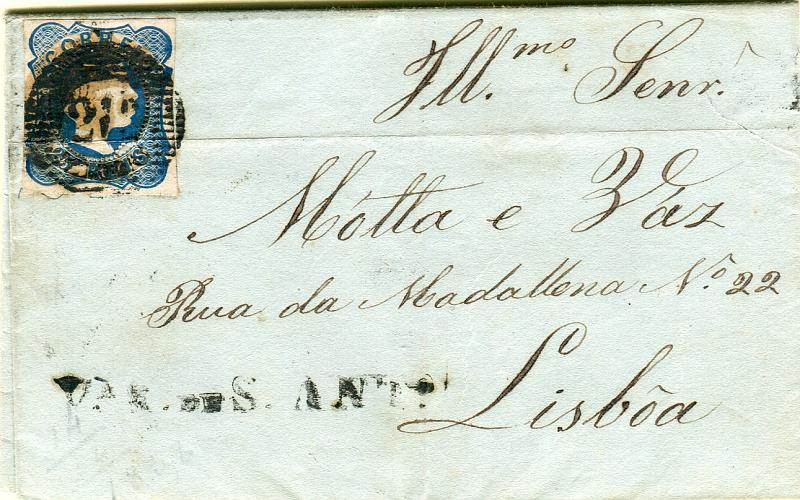 CORREIO
Ill.mo Senr.
Mótta e Váz
Rua da Madallena No. 22
V.A R. DE S. ANT.O
Lisbôa